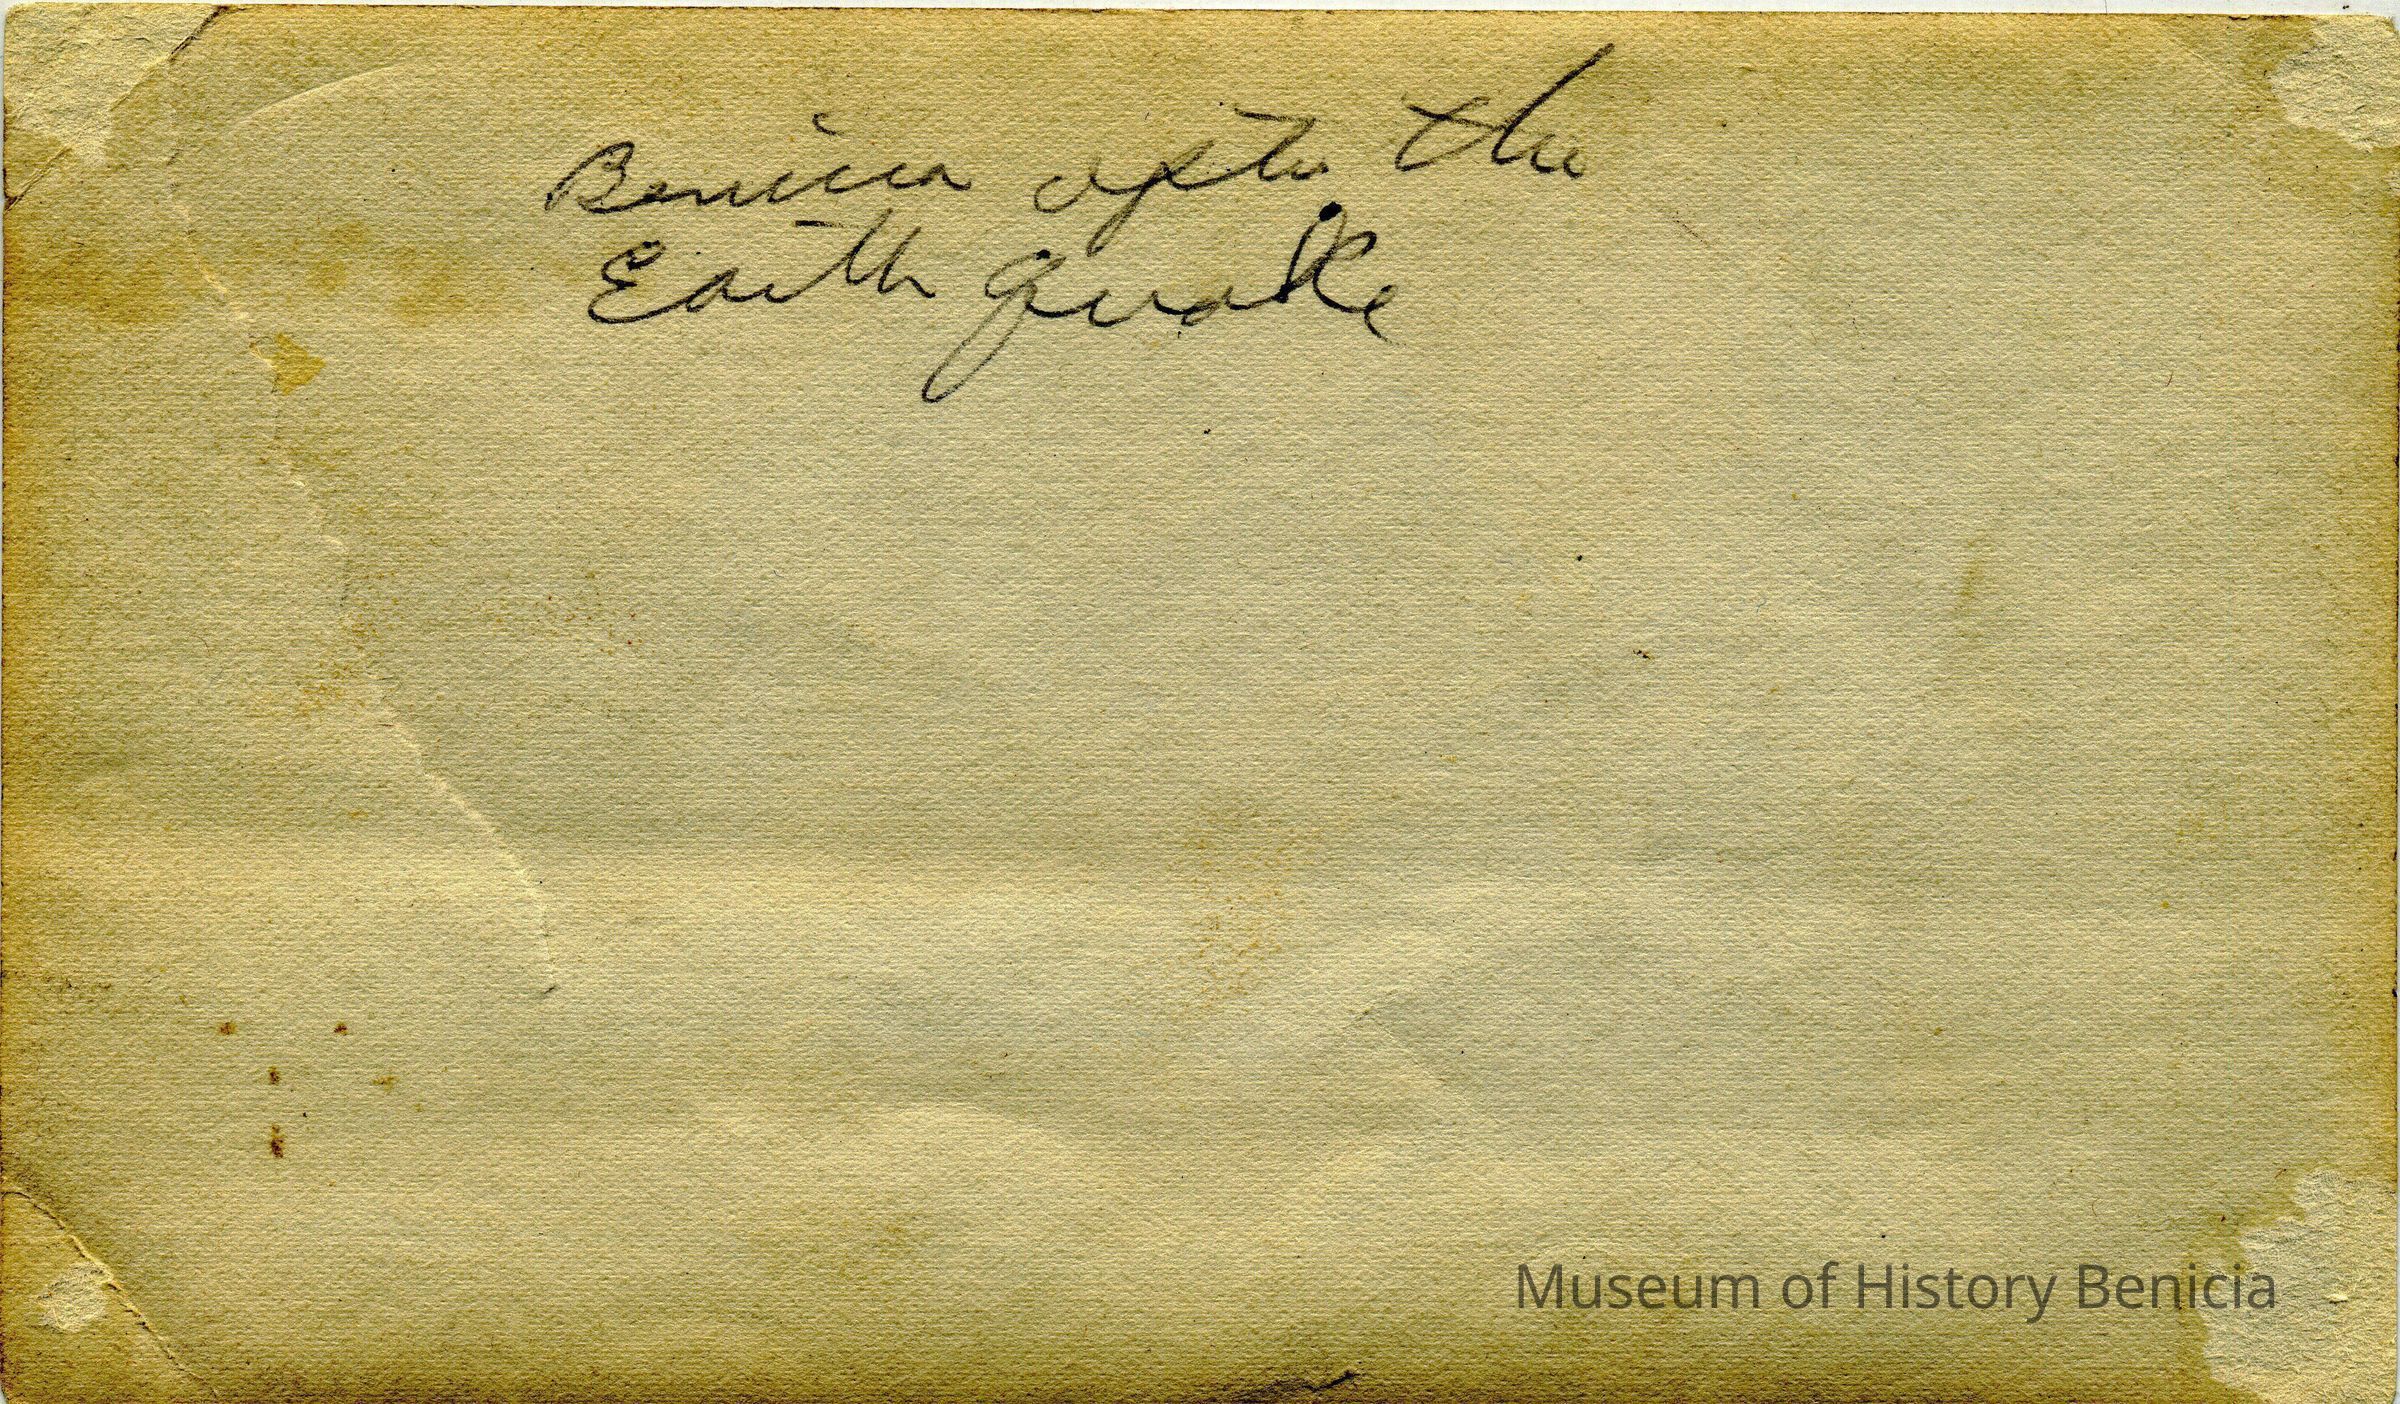 Benicia after the
Earth quake
Museum of History Benicia